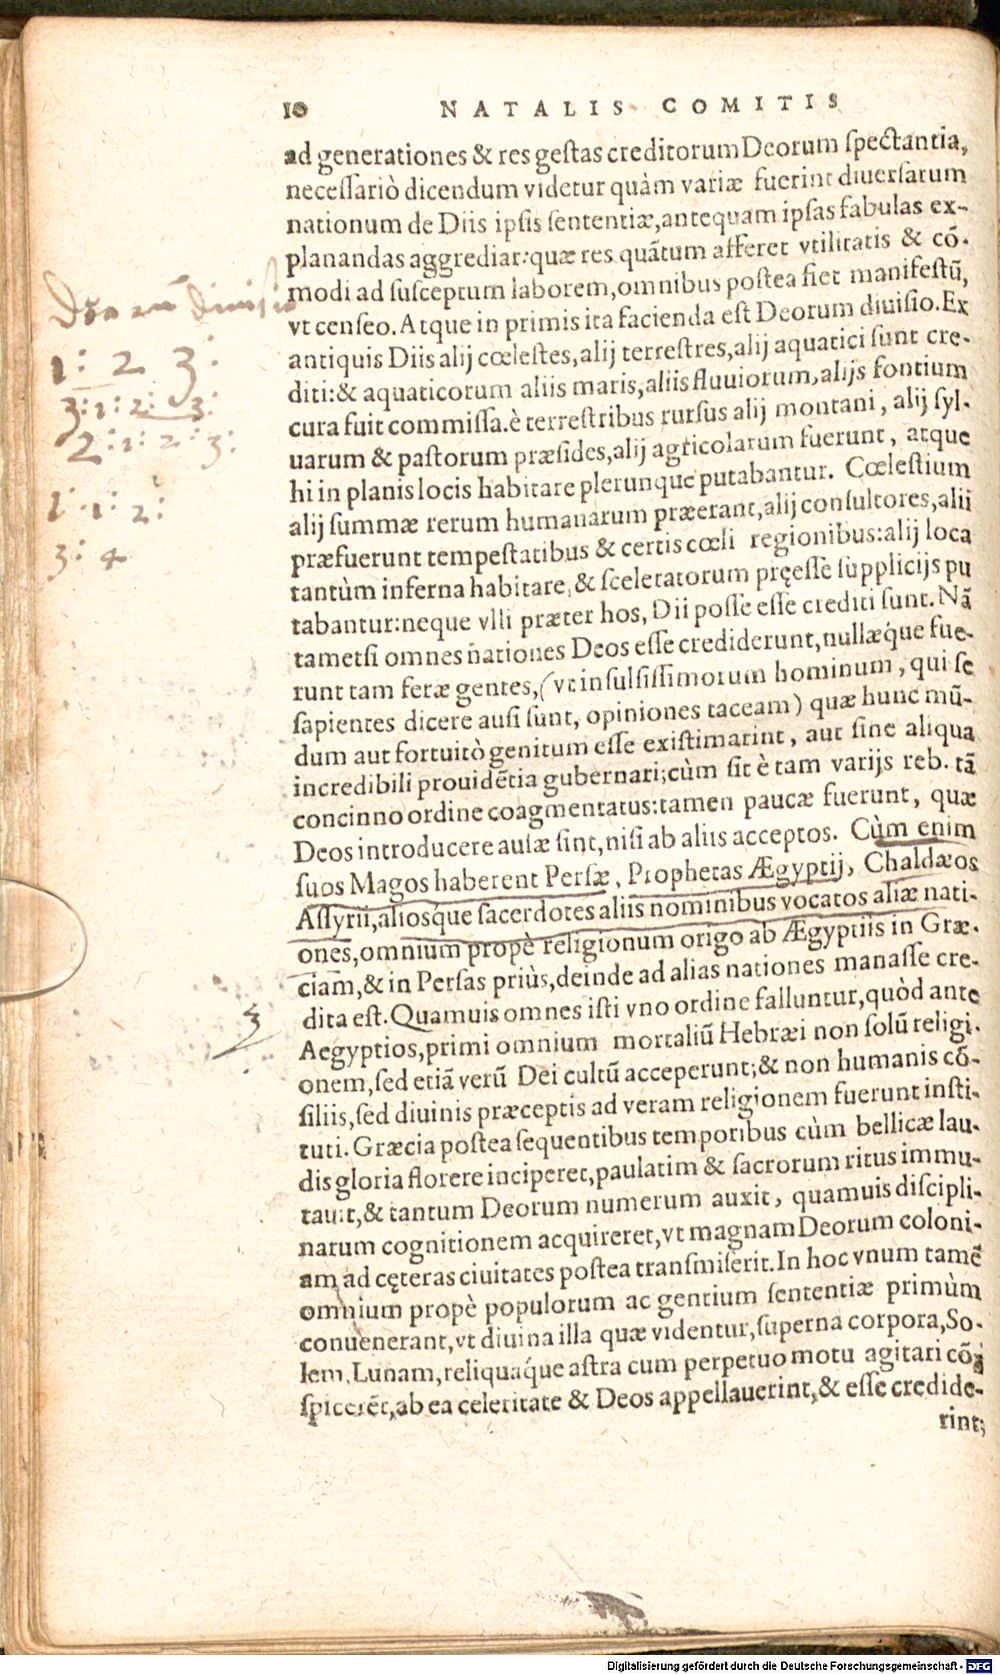 10 NATALIS COMITIS
ad generationes & res gestas creditorum Deorum spectantia,
necessariò dicendum videtur quàm variæ fuerint diuersarum
nationum de Diis ipsis sententiæ, antequam ipsas fabulas ex-
planandas aggrediar: quæ res quãtum afferet vtilitatis & cõ-
modi ad susceptum laborem, omnibus postea fiet manifestũ,
vt censeo. Atque in primis ita facienda est Deorum diuisio. Ex
antiquis Diis alij cœlestes, alij terrestres, alij aquatici sunt cre-
diti: & aquaticorum aliis maris, aliis fluuiorum, alijs fontium
cura fuit commissa. è terrestribus rursus alij montani, alij syl-
uarum & pastorum præsides, alij agricolarum fuerunt, atque
hi in planis locis habitare plerunque putabantur. Cœlestium
alij summæ rerum humanarum præerant, alij consultores, alii
præfuerunt tempestatibus & certis cœli regionibus: alij loca
tantùm inferna habitare, & sceleratorum pręesse supplicijs pu
tabantur: neque vlli præter hos, Dii posse esse crediti sunt. Nã
tametsi omnes nationes Deos esse crediderunt, nullæq́ue fue-
runt tam feræ gentes, (vt insulsissimorum hominum, qui se
sapientes dicere ausi sunt, opiniones taceam) quæ hunc mũ-
dum aut fortuitò genitum esse existimarint, aut sine aliqua
incredibili prouidẽtia gubernari; cùm sit è tam varijs reb. tã
concinno ordine coagmentatus: tamen paucæ fuerunt, quæ
Deos introducere ausæ sint, nisi ab aliis acceptos. Cùm enim
suos Magos haberent Persæ, Prophetas Ægyptij, Chaldæos
Assyrii, aliosq́ue sacerdotes aliis nominibus vocatos aliæ nati-
ones, omnium propè religionum origo ab Ægyptiis in Græ-
ciam, & in Persas priùs, deinde ad alias nationes manasse cre-
dita est. Quamuis omnes isti vno ordine falluntur, quòd ante
Aegyptios, primi omnium mortaliũ Hebræi non solũ religi-
onem, sed etiã verũ Dei cultũ acceperunt; & non humanis cõ-
siliis, sed diuinis præceptis ad veram religionem fuerunt insti-
tuti. Græcia postea sequentibus temporibus cùm bellicæ lau-
dis gloria florere inciperet, paulatim & sacrorum ritus immu-
tauit, & tantum Deorum numerum auxit, quamuis discipli-
narum cognitionem acquireret, vt magnam Deorum coloni-
am ad cęteras ciuitates postea transmiserit. In hoc vnum tamẽ
omnium propè populorum ac gentium sententiæ primùm
conuenerant, vt diuina illa quæ videntur, superna corpora, So-
lem, Lunam, reliquaq́ue astra cum perpetuo motu agitari cõ-
spicerẽt, ab ea celeritate & Deos appellauerint, & esse credide-
rint;
diuisio
1: 2 3:
3: 1: 2: 3:
2: 1: 2: 3:
1: 1: 2:
3: 4
3
Digitalisierung gefördert durch die Deutsche Forschungsgemeinschaft - DFG